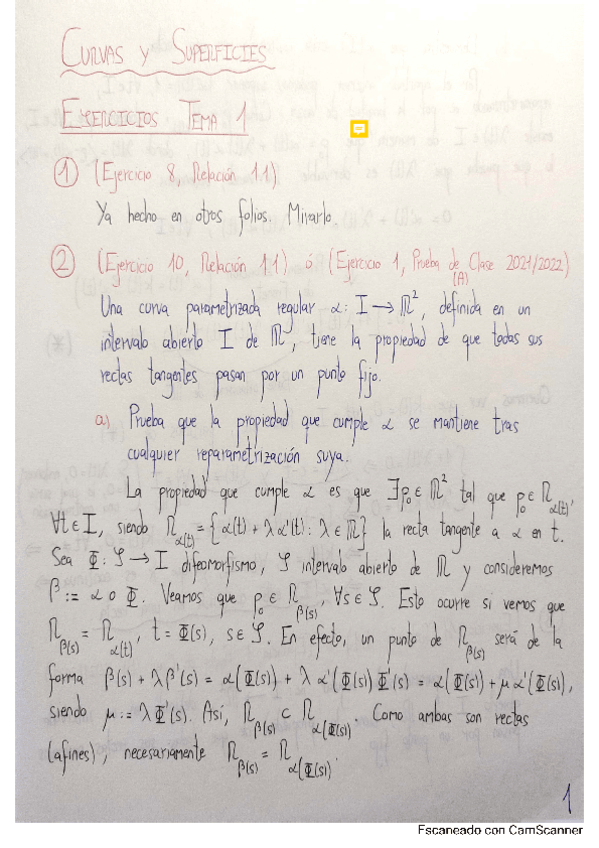 CURVAS Y SUPERFICIES
EJERCICIOS TEMA 1
① (Ejercicio 8, Relación 1.1)
Ya hecho en otros folios. Mirarlo.
② (Ejercicio 10, Relación 1.1) ó (Ejercicio 1, Prueba de Clase 2021/2022)
(A)
Una curva parametrizada regular α: I → ℝ², definida en un
intervalo abierto I de ℝ, tiene la propiedad de que todas sus
rectas tangentes pasan por un punto fijo.
a) Prueba que la propiedad que cumple α se mantiene tras
cualquier reparametrización suya.
La propiedad que cumple α es que ∃p₀ ∈ ℝ² tal que p₀ ∈ R_α(t),
∀t ∈ I, siendo R_α(t) = {α(t) + λ α'(t) : λ ∈ ℝ} la recta tangente a α en t.
Sea Φ: J → I difeomorfismo, J intervalo abierto de ℝ y consideremos
β := α ∘ Φ. Veamos que p₀ ∈ R_β(s), ∀s ∈ J. Esto ocurre si vemos que
R_β(s) = R_α(t), t = Φ(s), s ∈ J. En efecto, un punto de R_β(s) será de la
forma β(s) + λ β'(s) = α(Φ(s)) + λ α'(Φ(s)) Φ'(s) = α(Φ(s)) + μ α'(Φ(s)),
siendo μ := λ Φ'(s). Así, R_β(s) ⊂ R_α(Φ(s)). Como ambas son rectas
(afines), necesariamente R_β(s) = R_α(Φ(s)).
1
Escaneado con CamScanner